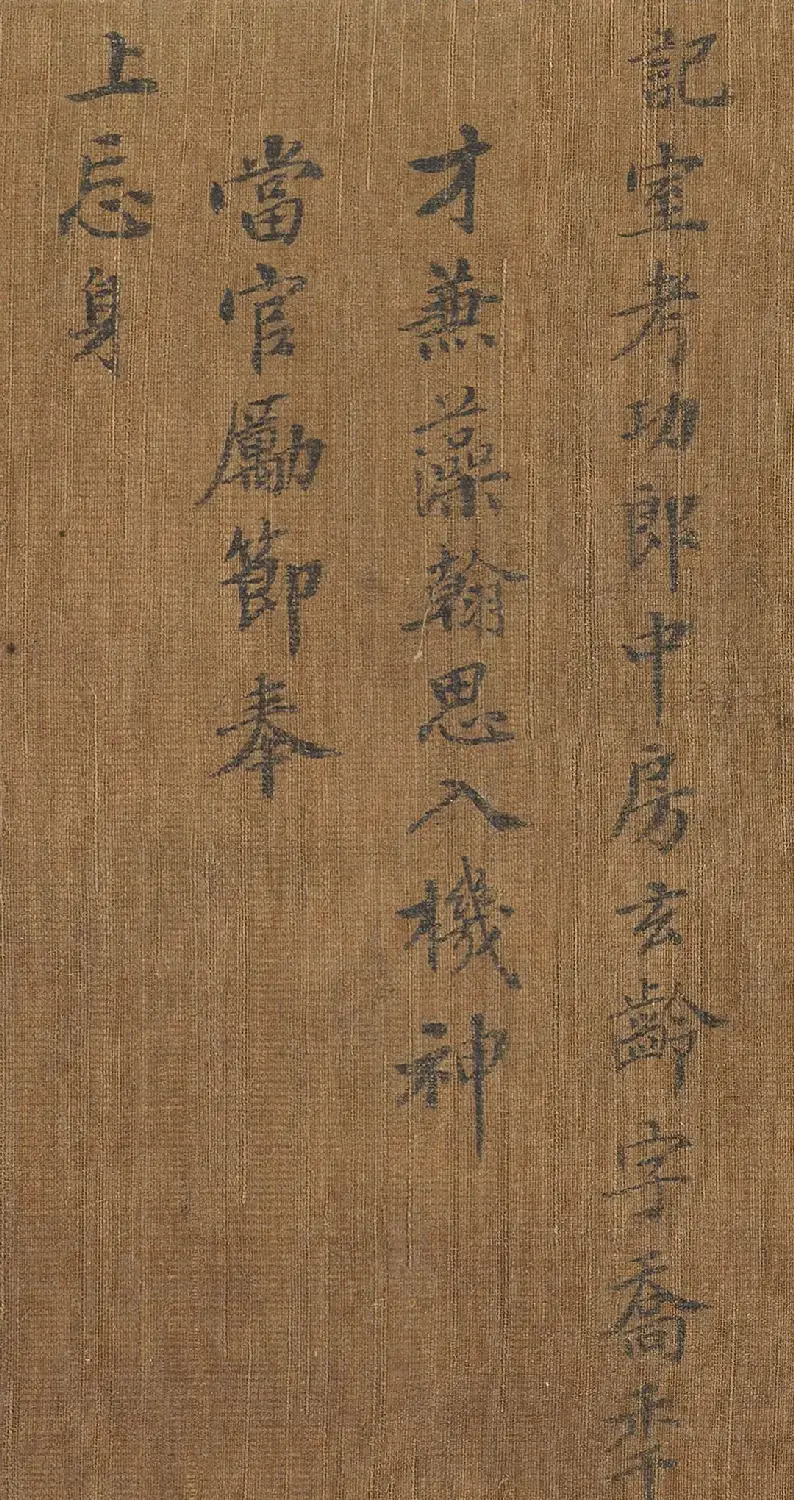 記室考功郎中房玄齡字喬秊
才兼藻翰思入機神
當官勵節奉
上忘身